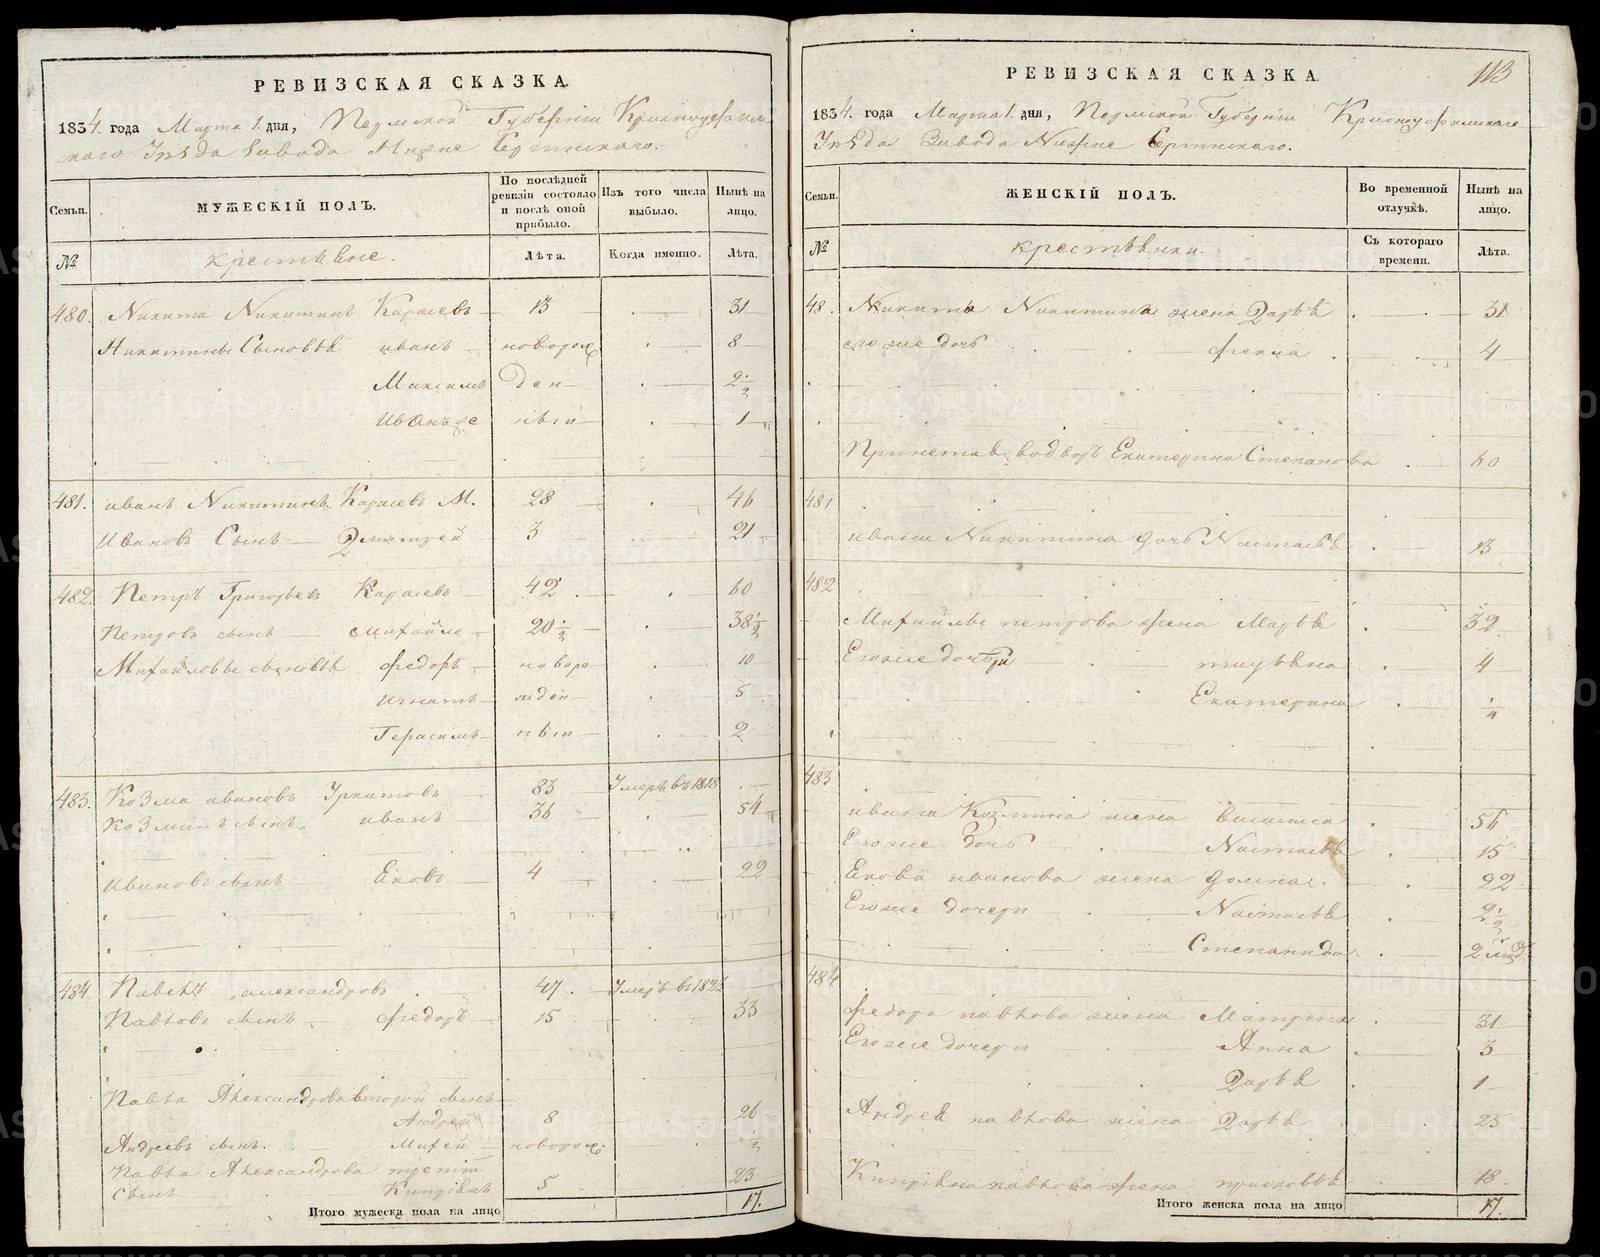 РЕВИЗСКАЯ СКАЗКА.
1834. года Марта 1. дня, Пермской Губернiи Красноуфим
скаго Уѣзда Завода Нижне Сергинскаго.
Семьи.
МУЖЕСКIЙ ПОЛЪ.
По послѣдней ревизiи состояло и послѣ оной прибыло.
Изъ того числа выбыло.
Нынѣ на лицо.
№
крестьяне.
Лѣта.
Когда именно.
Лѣта.
480. Никита Никитинъ Карасевъ 13 31
Никитины Сыновья иванъ новорож 8
Максимъ ден 2 1/2
Иванъ же ныи 1
481. иванъ Никитинъ Карасевъ М. 28 46
Ивановъ Сынъ Дмитрей 3 21
482. Петръ Григорьевъ Карасевъ 42 60
Петровъ сынъ Михайло 20 1/2 38 1/2
Михайловы сыновья федоръ новоро 10
игнатъ жден 5
Герасимъ ныи 2
483. Козма ивановъ 83 Умеръ въ 1818
Козминъ сынъ иванъ 36 54
Ивановъ сынъ Ековъ 4 22
484 Павелъ александровъ 47 Умеръ въ
Павловъ сынъ федоръ 15 33
Павла Александрова второй сынъ
Андрей 8 26
Андреевъ сынъ. новорож. 1/2
Павла Александрова третiй
Сынъ Кипрiянъ 5 23
Итого мужеска пола на лицо 17.
РЕВИЗСКАЯ СКАЗКА.
113
1834. года Марта 1. дня, Пермской Губернiи Красноуфимскаго
Уѣзда Завода Нижне Сергинскаго.
Семьи.
ЖЕНСКIЙ ПОЛЪ.
Во временной отлучкѣ.
Нынѣ на лицо.
№
крестьянки.
Съ котораго времени.
Лѣта.
48. Никиты Никитина жена Дарья 31
его же дочь фекла 4
Екатерина Степанова 60
481
ивана Никитина дочь Настасья 13
482
Михайлы петрова жена Марья 32
Его же дочери татьяна 4
Екатерина 1/4
483
ивана Козмина жена Василиса 54
Его же дочь Настасья 15
Екова иванова жена домна. 22
Его же дочери Настасья 2 1/2
Степанида 2
484
федора павлова жена Матрена 31
Его же дочери Анна 3
Дарья 1
Андрея павлова жена Дарья 25
Кипрiяна павлова жена прасковья 18
Итого женска пола на лицо 17.
METRIKI.GASO-URAL.RU